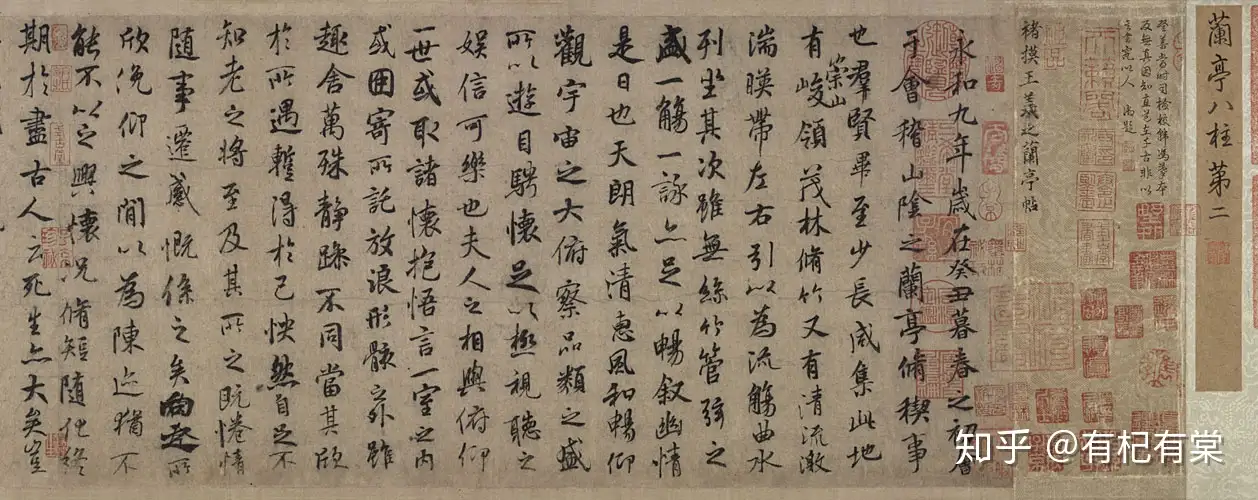 蘭亭八柱第二
褚摸王羲之蘭亭帖
永和九年歲在癸丑暮春之初會
于會稽山陰之蘭亭脩稧事
也羣賢畢至少長咸集此地
有崇山峻領茂林脩竹又有清流激
湍暎帶左右引以為流觴曲水
列坐其次雖無絲竹管弦之
盛一觴一詠亦足以暢敘幽情
是日也天朗氣清惠風和暢仰
觀宇宙之大俯察品類之盛
所以遊目騁懷足以極視聽之
娛信可樂也夫人之相與俯仰
一世或取諸懷抱悟言一室之內
或因寄所託放浪形骸之外雖
趣舍萬殊靜躁不同當其欣
於所遇暫得於己怏然自足不
知老之將至及其所之既惓情
隨事遷感慨係之矣向之所
欣俛仰之閒以為陳迹猶不
能不以之興懷況脩短隨化終
期於盡古人云死生亦大矣豈
知乎 @有杞有棠